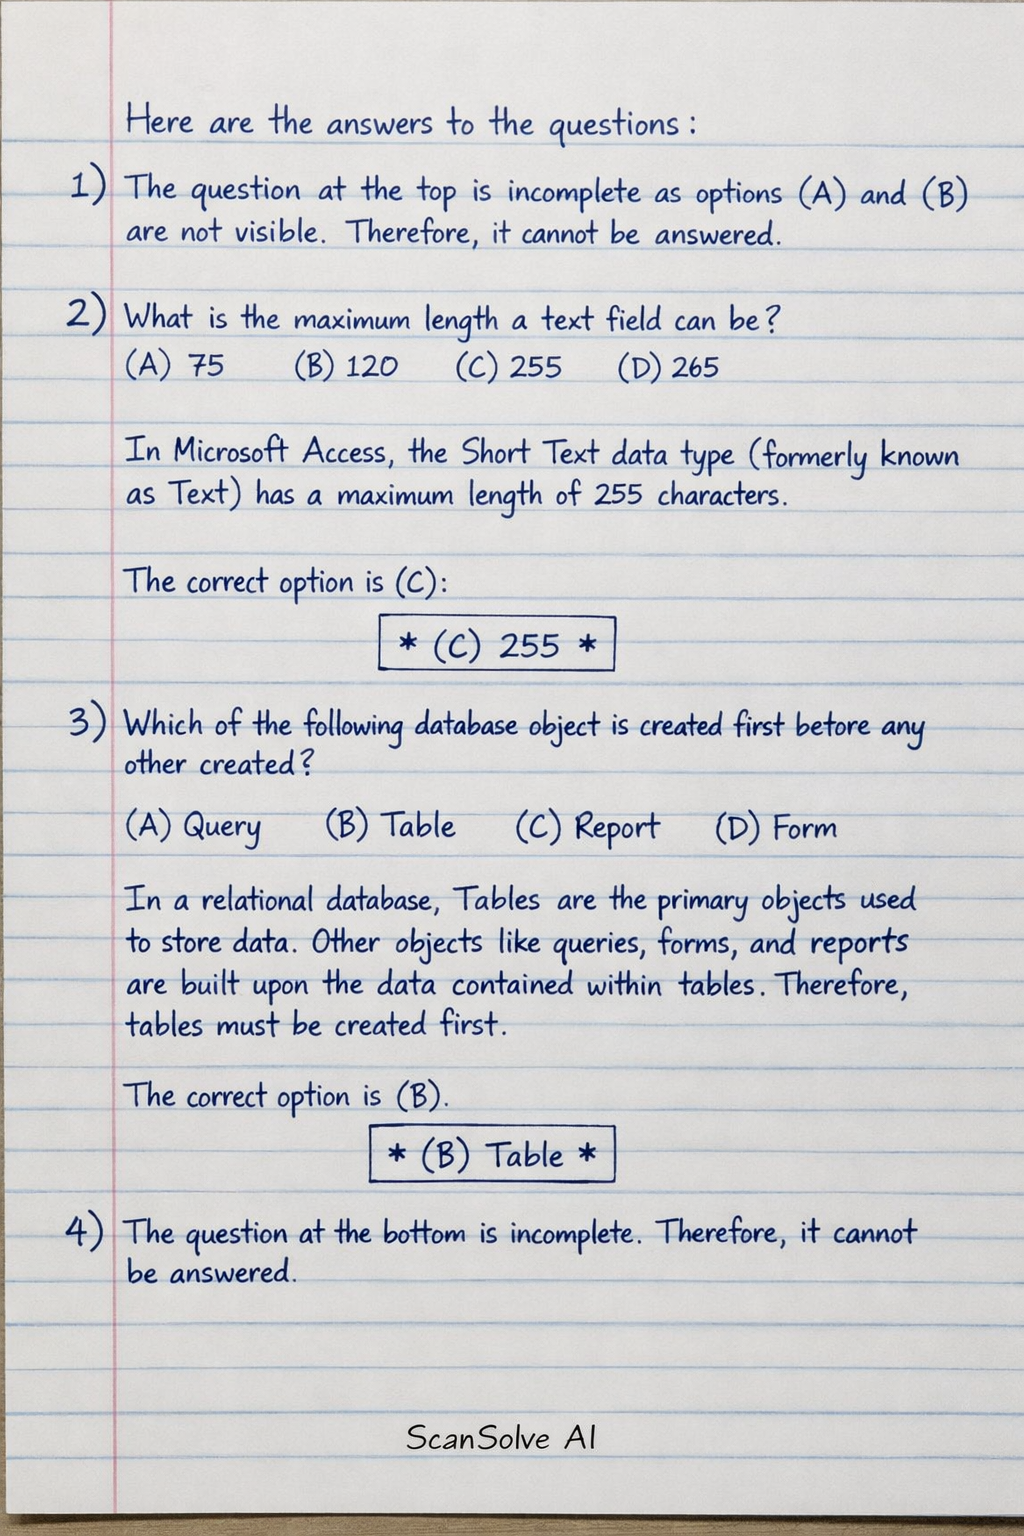 Here are the answers to the questions :
1) The question at the top is incomplete as options (A) and (B)
are not visible. Therefore, it cannot be answered.
2) What is the maximum length a text field can be?
(A) 75 (B) 120 (C) 255 (D) 265
In Microsoft Access, the Short Text data type (formerly known
as Text) has a maximum length of 255 characters.
The correct option is (C):
* (C) 255 *
3) Which of the following database object is created first before any
other created?
(A) Query (B) Table (C) Report (D) Form
In a relational database, Tables are the primary objects used
to store data. Other objects like queries, forms, and reports
are built upon the data contained within tables. Therefore,
tables must be created first.
The correct option is (B).
* (B) Table *
4) The question at the bottom is incomplete. Therefore, it cannot
be answered.
ScanSolve AI